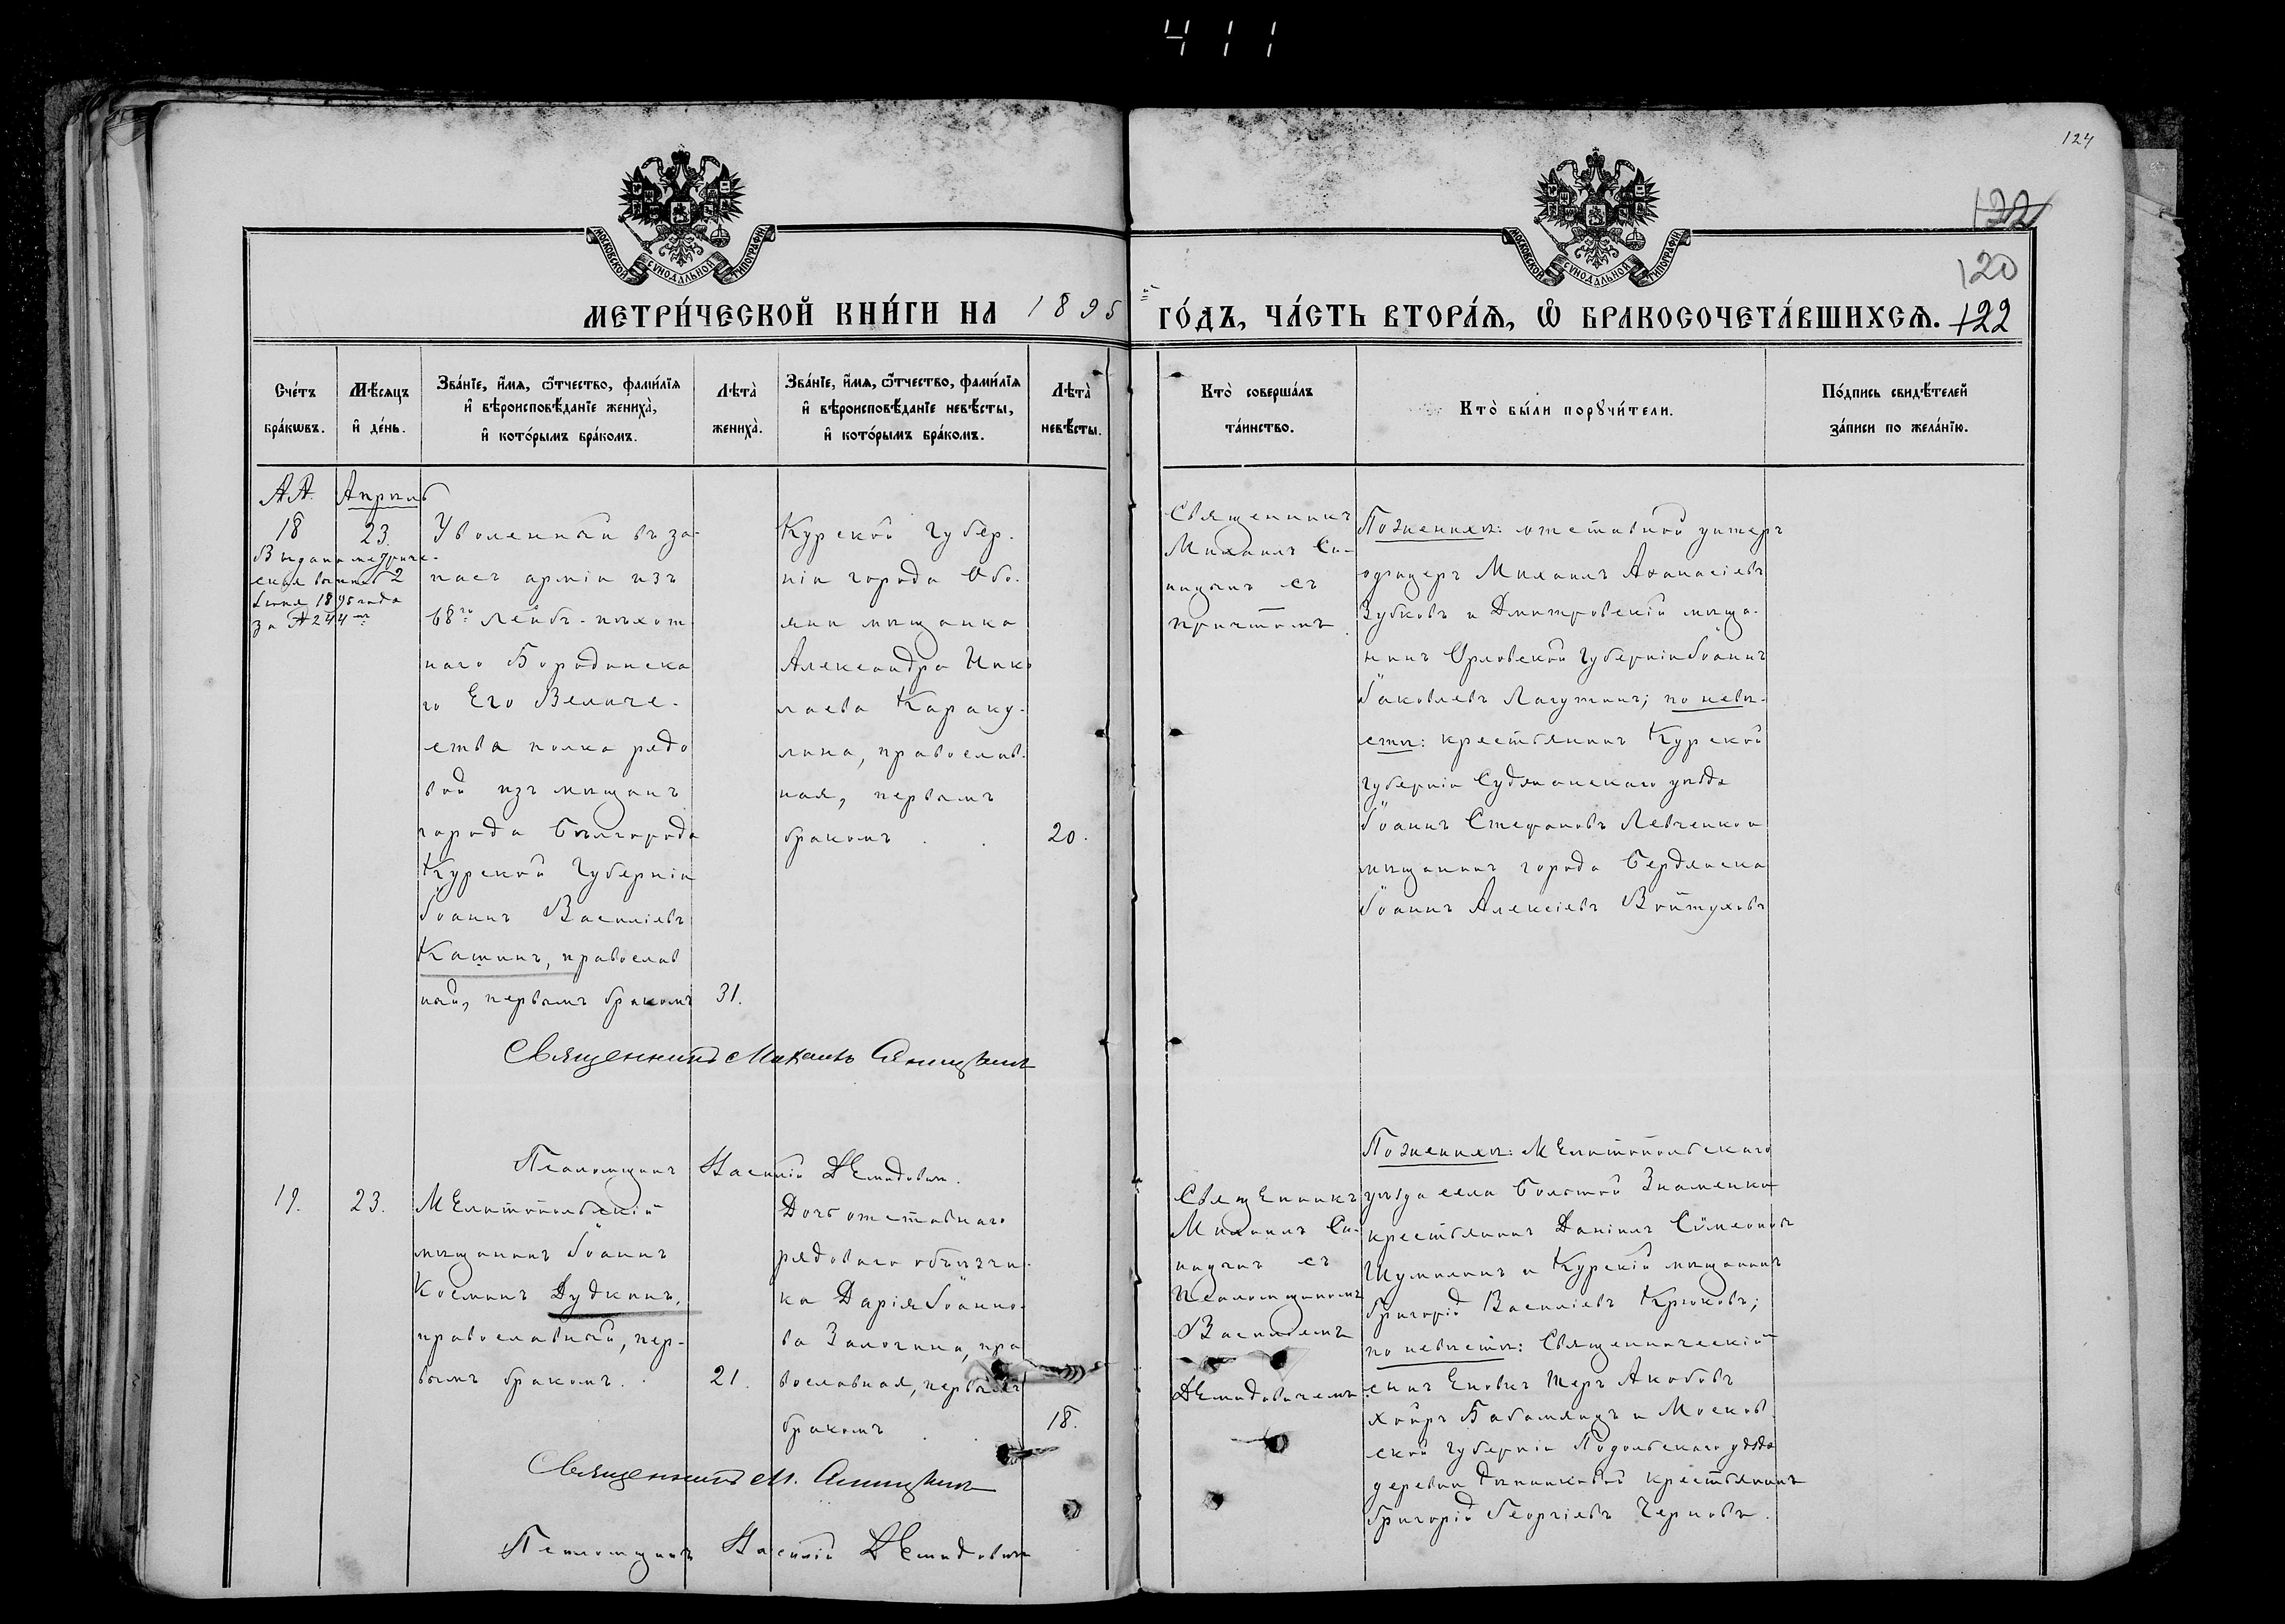 411
124
122
120
122
МОСКОВСКОЙ СѴНОДАЛЬНОЙ ТИПОГРАФІИ
МОСКОВСКОЙ СѴНОДАЛЬНОЙ ТИПОГРАФІИ
МЕТРИ́ЧЕСКОЙ КНИ́ГИ НА 1895 ГО́ДЪ, ЧА́СТЬ ВТОРА́Я, Ѡ БРАКОСОЧЕТА́ВШИХСЯ.
Сче́тъ
бра́кѡвъ.
Мѣ́сяцъ
и҆ де́нь.
Зва́нїе, и҆́мя, ѻ҆́тчество, фами́лїя
и҆ вѣроисповѣ́данїе жениха̀,
и҆ кото́рымъ бра́комъ.
Лѣта̀
жениха̀.
Зва́нїе, и҆́мя, ѻ҆́тчество, фами́лїя
и҆ вѣроисповѣ́данїе невѣ́сты,
и҆ кото́рымъ бра́комъ.
Лѣта̀
невѣ́сты.
Кто̀ соверша́лъ
та́инство.
Кто̀ бы́ли порꙋчи́тели.
По́дпись свидѣ́телей
за́писи по жела́нїю.
Апрѣль
18
23.
Выдана метриче-
ская выпись 2
Іюня 1895 года
за № 244
Уволенный въ за-
пасъ арміи изъ
68го Лейбъ-пѣхот
наго Бородинска
го Его Величе-
ства полка рядо
вой изъ мѣщанъ
города Бѣлгорода
Курской Губерніи
Іоаннъ Василіевъ
Кашинъ, православ
ный, первымъ бракомъ
31.
Курской Губер-
ніи города Обо-
яни мѣщанка
Александра Нико
лаева Караку-
лина, православ-
ная, первымъ
бракомъ
20.
Священникъ
Михаилъ Си-
ницынъ съ
причтомъ
По женихѣ: отставной унтеръ
офицеръ Михаилъ Аѳанасіевъ
Зубковъ и Дмитровскій мѣща-
нинъ Орловской Губерніи Іоаннъ
Іаковлевъ Лагутинъ; по невѣ-
стѣ: крестьянинъ Курской
Губерніи Суджанскаго уѣзда
Іоаннъ Стефановъ Левченко и
мѣщанинъ города Бердянска
Іоаннъ Алексіевъ
Священникъ Михаилъ Синицынъ
Псаломщикъ Василій Демидовичъ.
19.
23.
Мелитопольскій
мѣщанинъ Іоаннъ
Косминъ Дудкинъ,
православный, пер-
вымъ бракомъ.
21.
Дочь отставнаго
рядоваго объѣзчи-
ка Дарія Іоанно-
ва Залогина, пра
вославная, первымъ
бракомъ
18.
Священникъ
Михаилъ Си-
ницынъ съ
Псаломщикомъ
Василіемъ
Демидовичемъ
По женихѣ: Мелитопольскаго
уѣзда села Большой Знаменки
крестьянинъ Даніилъ Сѵмеоновъ
Шумилинъ и Курскій мѣщанинъ
Григорій Василіевъ Крюковъ;
по невѣстѣ: Священническій
сынъ Теръ Акобовъ
и Москов
ской Губерніи Подольскаго уѣзда
деревни крестьянинъ
Григорій Георгіевъ Черновъ.
Священникъ М. Синицынъ
Псаломщикъ Василій Демидовичъ